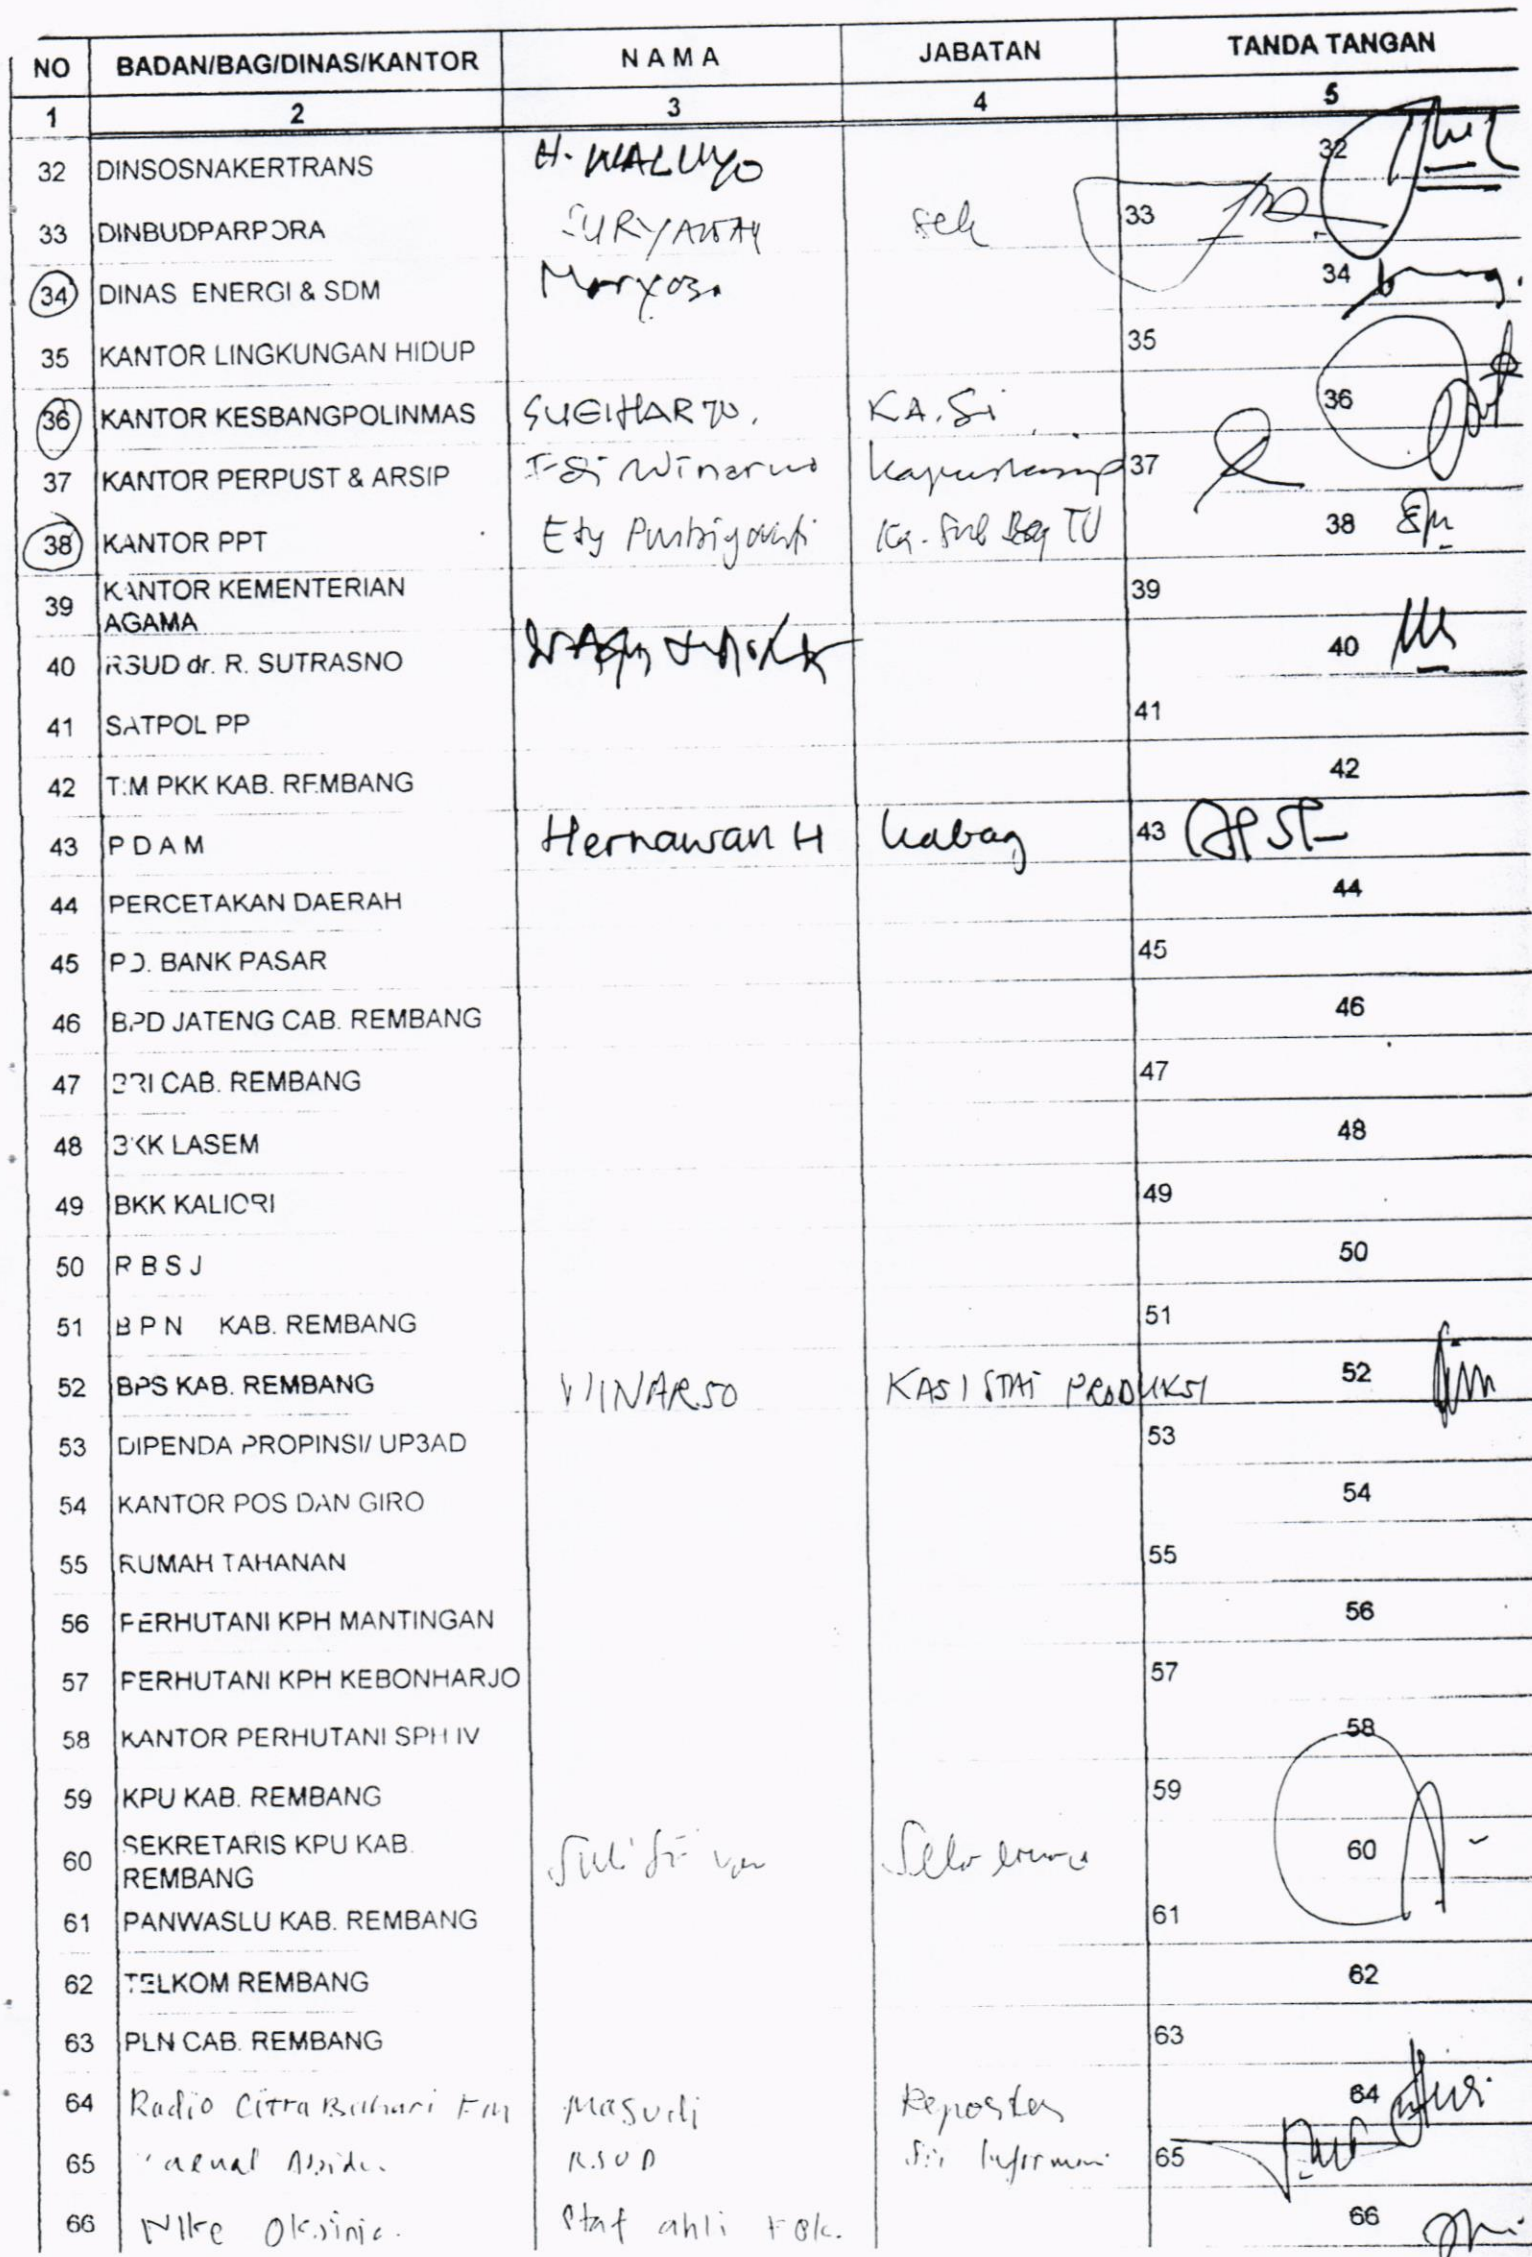 NO BADAN/BAG/DINAS/KANTOR N A M A JABATAN TANDA TANGAN
1 2 3 4 5
32 DINSOSNAKERTRANS H. WALUYO 32
33 DINBUDPARPORA SURYAWAN Sek 33
34 DINAS ENERGI & SDM 34
35 KANTOR LINGKUNGAN HIDUP 35
36 KANTOR KESBANGPOLINMAS SUGIHARTO. KA. Si 36
37 KANTOR PERPUST & ARSIP Winarno 37
38 KANTOR PPT Ety Ka. Sub Bag TU 38
39 KANTOR KEMENTERIAN 39
AGAMA
40 RSUD dr. R. SUTRASNO 40
41 SATPOL PP 41
42 TIM PKK KAB. REMBANG 42
43 P D A M Hernawan H Kabag 43
44 PERCETAKAN DAERAH 44
45 PD. BANK PASAR 45
46 BPD JATENG CAB. REMBANG 46
47 BRI CAB. REMBANG 47
48 BKK LASEM 48
49 BKK KALIORI 49
50 R B S J 50
51 B P N KAB. REMBANG 51
52 BPS KAB. REMBANG WINARSO KASI STAT PRODUKSI 52
53 DIPENDA PROPINSI/ UP3AD 53
54 KANTOR POS DAN GIRO 54
55 RUMAH TAHANAN 55
56 PERHUTANI KPH MANTINGAN 56
57 PERHUTANI KPH KEBONHARJO 57
58 KANTOR PERHUTANI SPH IV 58
59 KPU KAB. REMBANG 59
60 SEKRETARIS KPU KAB. 60
REMBANG
61 PANWASLU KAB. REMBANG 61
62 TELKOM REMBANG 62
63 PLN CAB. REMBANG 63
64 Radio Citra Bahari Fm Masudi Reporter 64
65 RSUD 65
66 Nike Staf ahli 66